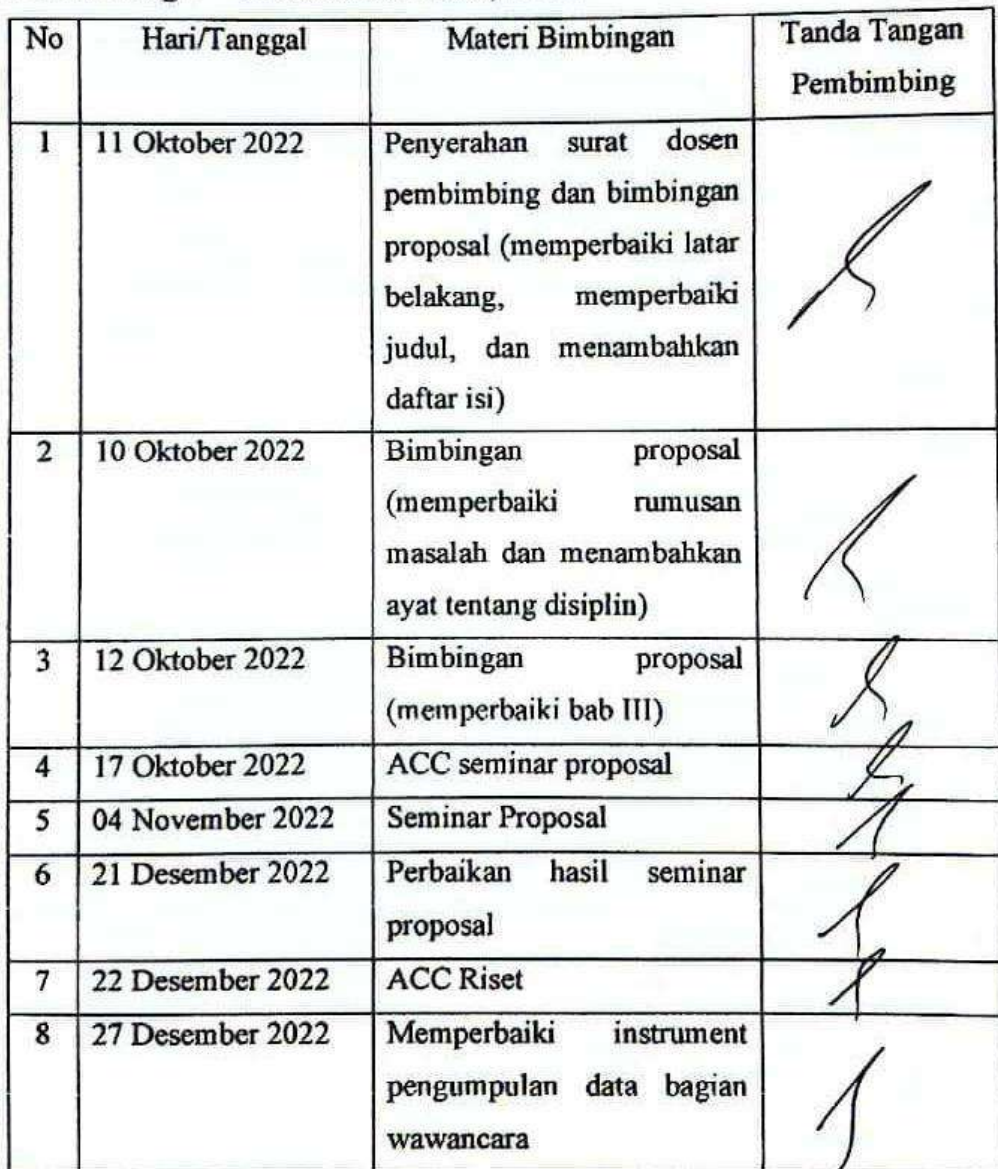 No Hari/Tanggal Materi Bimbingan Tanda Tangan
Pembimbing
1 11 Oktober 2022 Penyerahan surat dosen
pembimbing dan bimbingan
proposal (memperbaiki latar
belakang, memperbaiki
judul, dan menambahkan
daftar isi)
2 10 Oktober 2022 Bimbingan proposal
(memperbaiki rumusan
masalah dan menambahkan
ayat tentang disiplin)
3 12 Oktober 2022 Bimbingan proposal
(memperbaiki bab III)
4 17 Oktober 2022 ACC seminar proposal
5 04 November 2022 Seminar Proposal
6 21 Desember 2022 Perbaikan hasil seminar
proposal
7 22 Desember 2022 ACC Riset
8 27 Desember 2022 Memperbaiki instrument
pengumpulan data bagian
wawancara